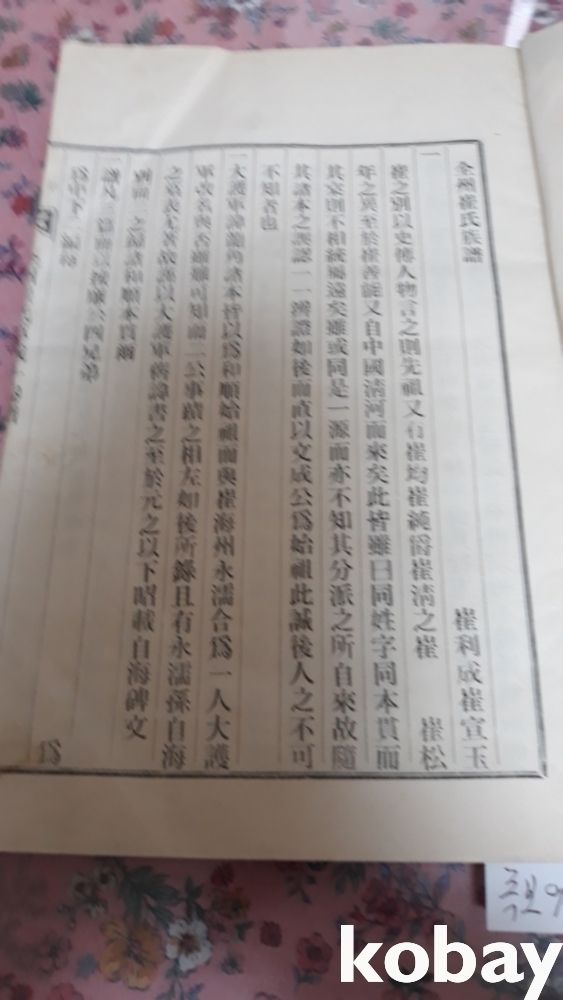 全州崔氏族譜
崔利成崔宣玉
一
崔之別以史傳人物言之則先祖又有崔均崔純爵崔淸之崔 崔松
年之異至於崔善能又自中國淸河而來矣此皆雖曰同姓字同本貫而
其宗則不相統屬遠矣雖或同是一源而亦不知其分派之所自來故隨
其諸本之誤認一一辨證如後而直以文成公爲始祖此誠後人之不可
不知者也
一大護軍諱龍角諸本皆以爲和順始祖而與崔海州永濡合爲一人大護
軍改名與否雖難可知而二公事蹟之相左如後所錄且有永濡孫自海
之墓表尤著故譜以大護軍舊諱書之至於元之以下昭載自海碑文
別冊 之歸諸和順本貫爾
一譜凡 四兄弟
爲中下二編
kobay